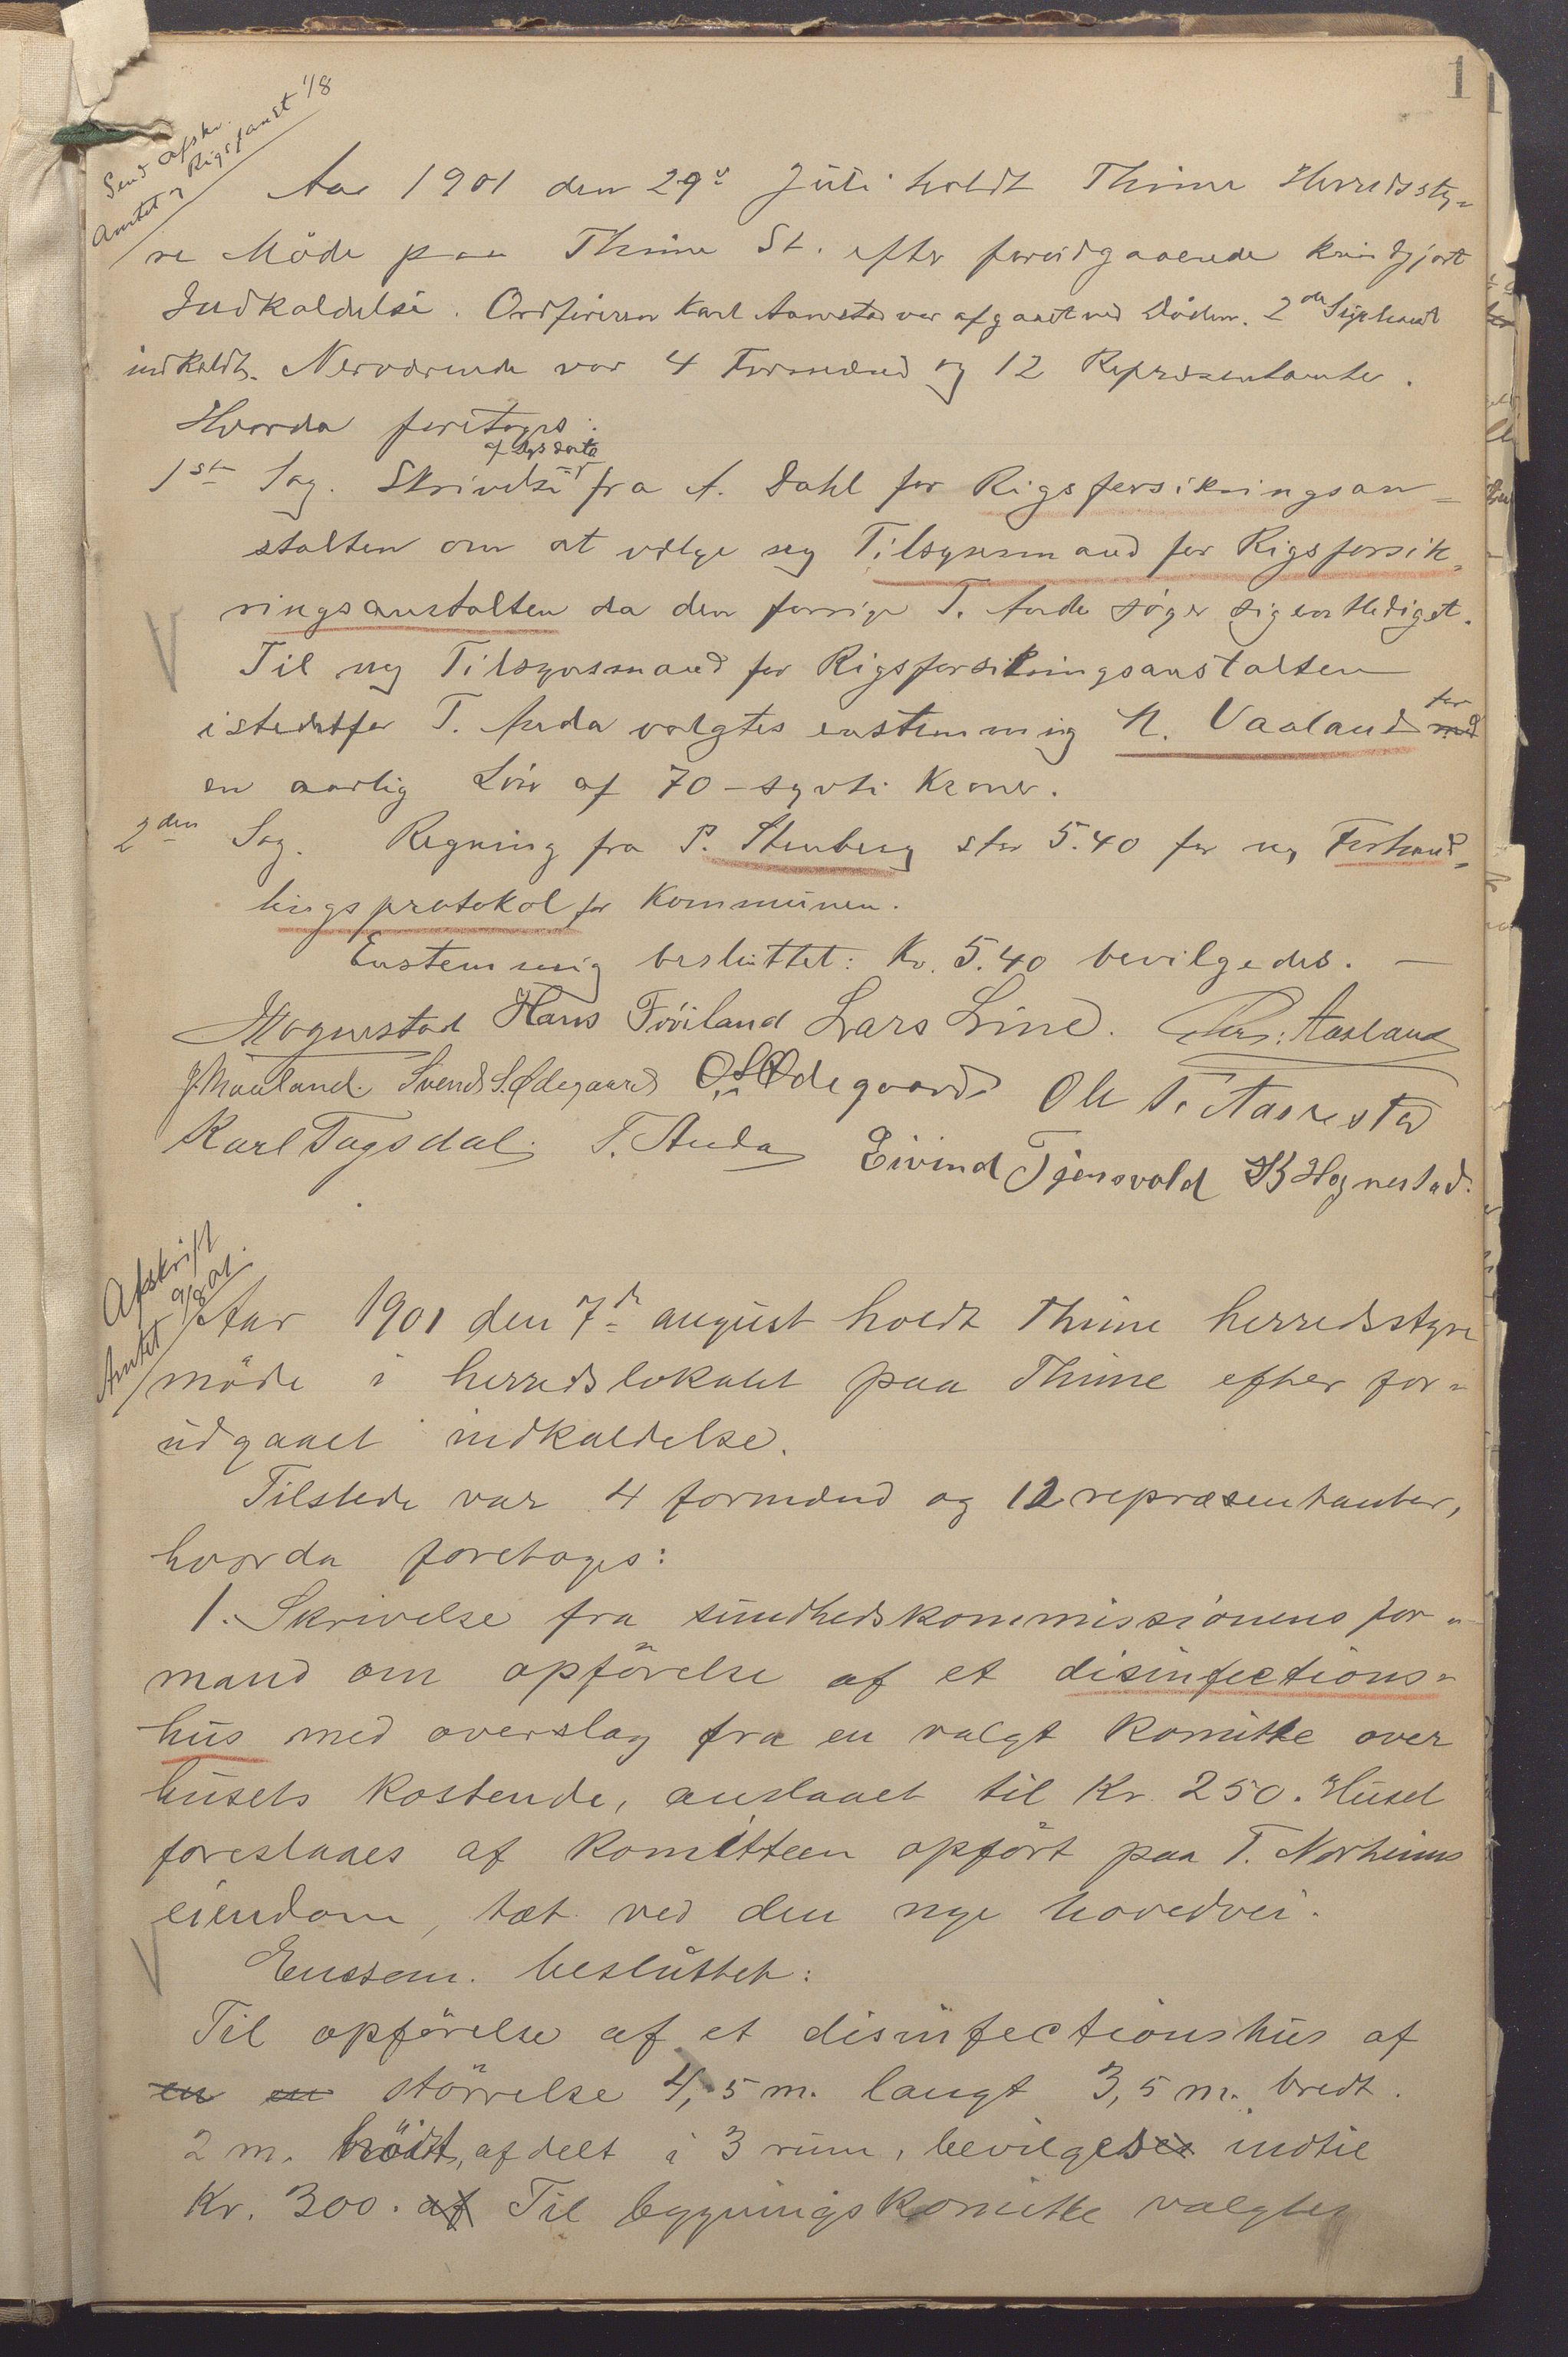 1
Send Afskr.
Amtet og Rigsfanst 1/8
Aar 1901 den 29de Juli holdt Thime Herredssty-
re Möde paa Thime St. efter forudgaaende kundgjort
Indkaldelse. Ordföreren Karl Aarrestad var afgaaet ved Döden. 2den Supleant
indkaldt. Nerværende var 4 Formænd og 12 Repræsentanter.
Hvorda foretoges:
1ste Sag. Skrivelse fra A. Dahl for Rigsforsikringsan-
stalten om at vælge ny Tilsynsmand for Rigsforsik-
ringsanstalten da den forrige T. Anda söger sig entlediget.
Til ny Tilsynsmand for Rigsforsikringsanstalten
istedetfor T. Anda valgtes enstemmig N. Vaaland for med
en aarlig Lön af 70 - sytti Kroner.
2den Sag. Regning fra P. Stenberg stor 5.40 for ny Forhand-
lingsprotokol for Kommunen.
Enstemmig besluttet: Kr. 5.40 bevilgedes. —
Hognestad Hans Fröiland Lars Line. Chr: Aasland
J. Mauland. Svend S. Ødegaard O. S. Ødegaard Ole T. Aarrestad
Karl Tagsdal. T. Anda Eivind Tjensvold B Hognestad.
Afskrift
Amtet 9/8 01.
Aar 1901 den 7de august holdt Thime herredsstyre
möde i herredslokalet paa Thime efter for-
udgaaet indkaldelse.
Tilstede var 4 formænd og 12 repræsentanter,
hvorda foretoges:
1. Skrivelse fra sundhedskommissionens for-
mand om opförelse af et disinfections-
hus med overslag fra en valgt komitte over
husets kostende, anslaaet til Kr. 250. Huset
foreslaaes af komitteen opfört paa T. Norheims
eiendom, tæt ved den nye hovedvei.
Enstem. besluttet:
Til opförelse af et disinfectionshus af
en en störrelse 4,5 m. langt 3,5 m. bredt.
2 m. höit, afdelt i 3 rum, bevilges indtil
Kr. 300. af Til bygningskomitte valgtes